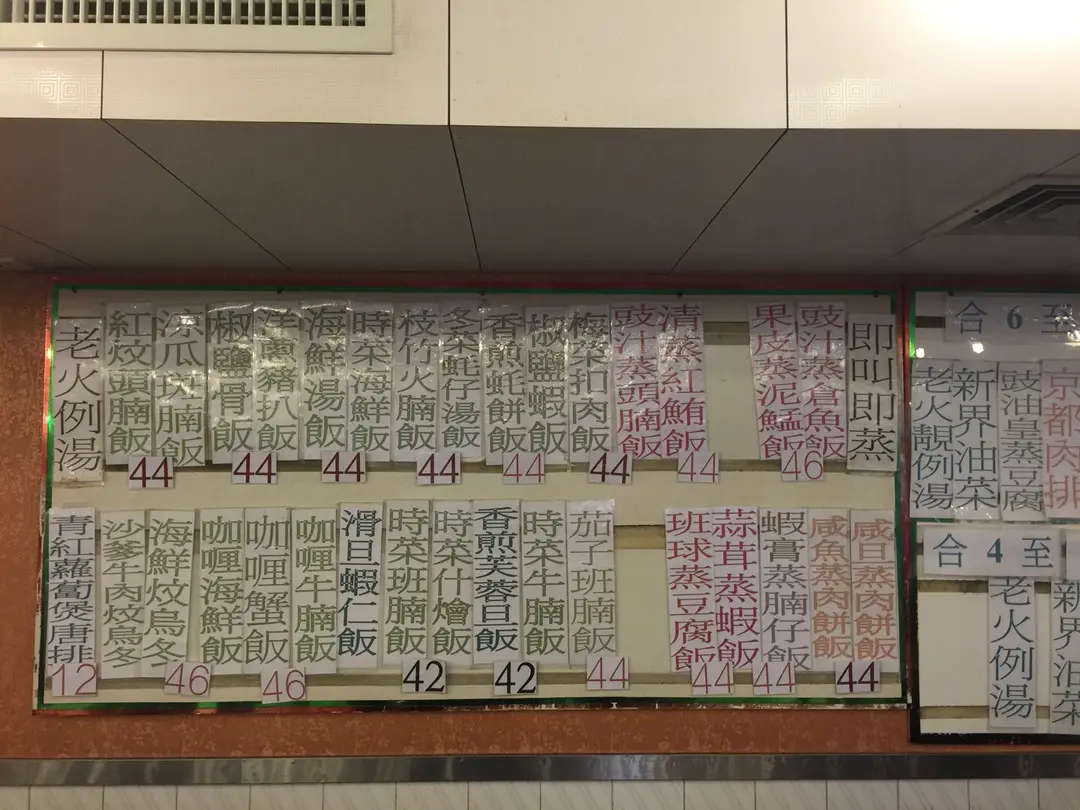 老火例湯
紅炆頭腩飯
涼瓜斑腩飯
椒鹽骨飯
洋蔥豬扒飯
海鮮湯飯
時菜海鮮飯
枝竹火腩飯
冬菜蚝仔湯飯
香煎蚝餅飯
椒鹽蝦飯
梅菜扣肉飯
豉汁蒸頭腩飯
清蒸紅鮪飯
果皮蒸泥鯭飯
豉汁蒸倉魚飯
即叫即蒸
44
44
44
44
44
44
44
46
青紅蘿蔔煲唐排
沙爹牛肉炆烏冬
海鮮炆烏冬
咖喱海鮮飯
咖喱蟹飯
咖喱牛腩飯
滑旦蝦仁飯
時菜班腩飯
時菜什燴飯
香煎芙蓉旦飯
時菜牛腩飯
茄子班腩飯
班球蒸豆腐飯
蒜茸蒸蝦飯
蝦膏蒸腩仔飯
咸魚蒸肉餅飯
咸旦蒸肉餅飯
12
46
46
42
42
44
44
44
44
合 6 至
老火靚例湯
新界油菜
豉油皇蒸豆腐
京都肉排
合 4 至
老火例湯
新界油菜